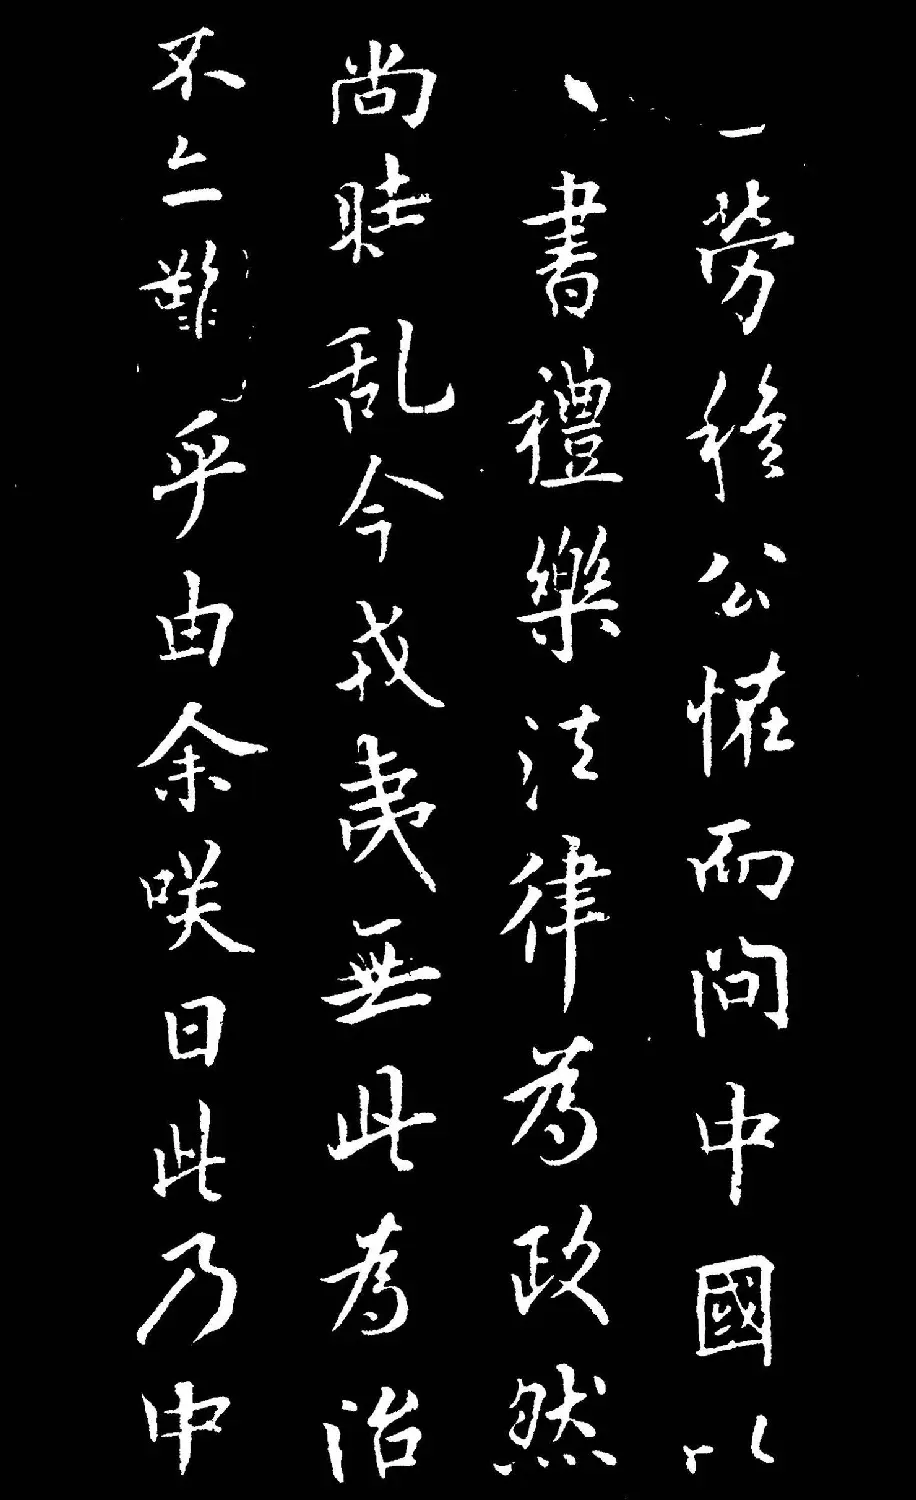 勞穆公恠而問中國以
書禮樂法律為政然
尚時乱今戎夷無此為治
不亦難乎由余咲曰此乃中